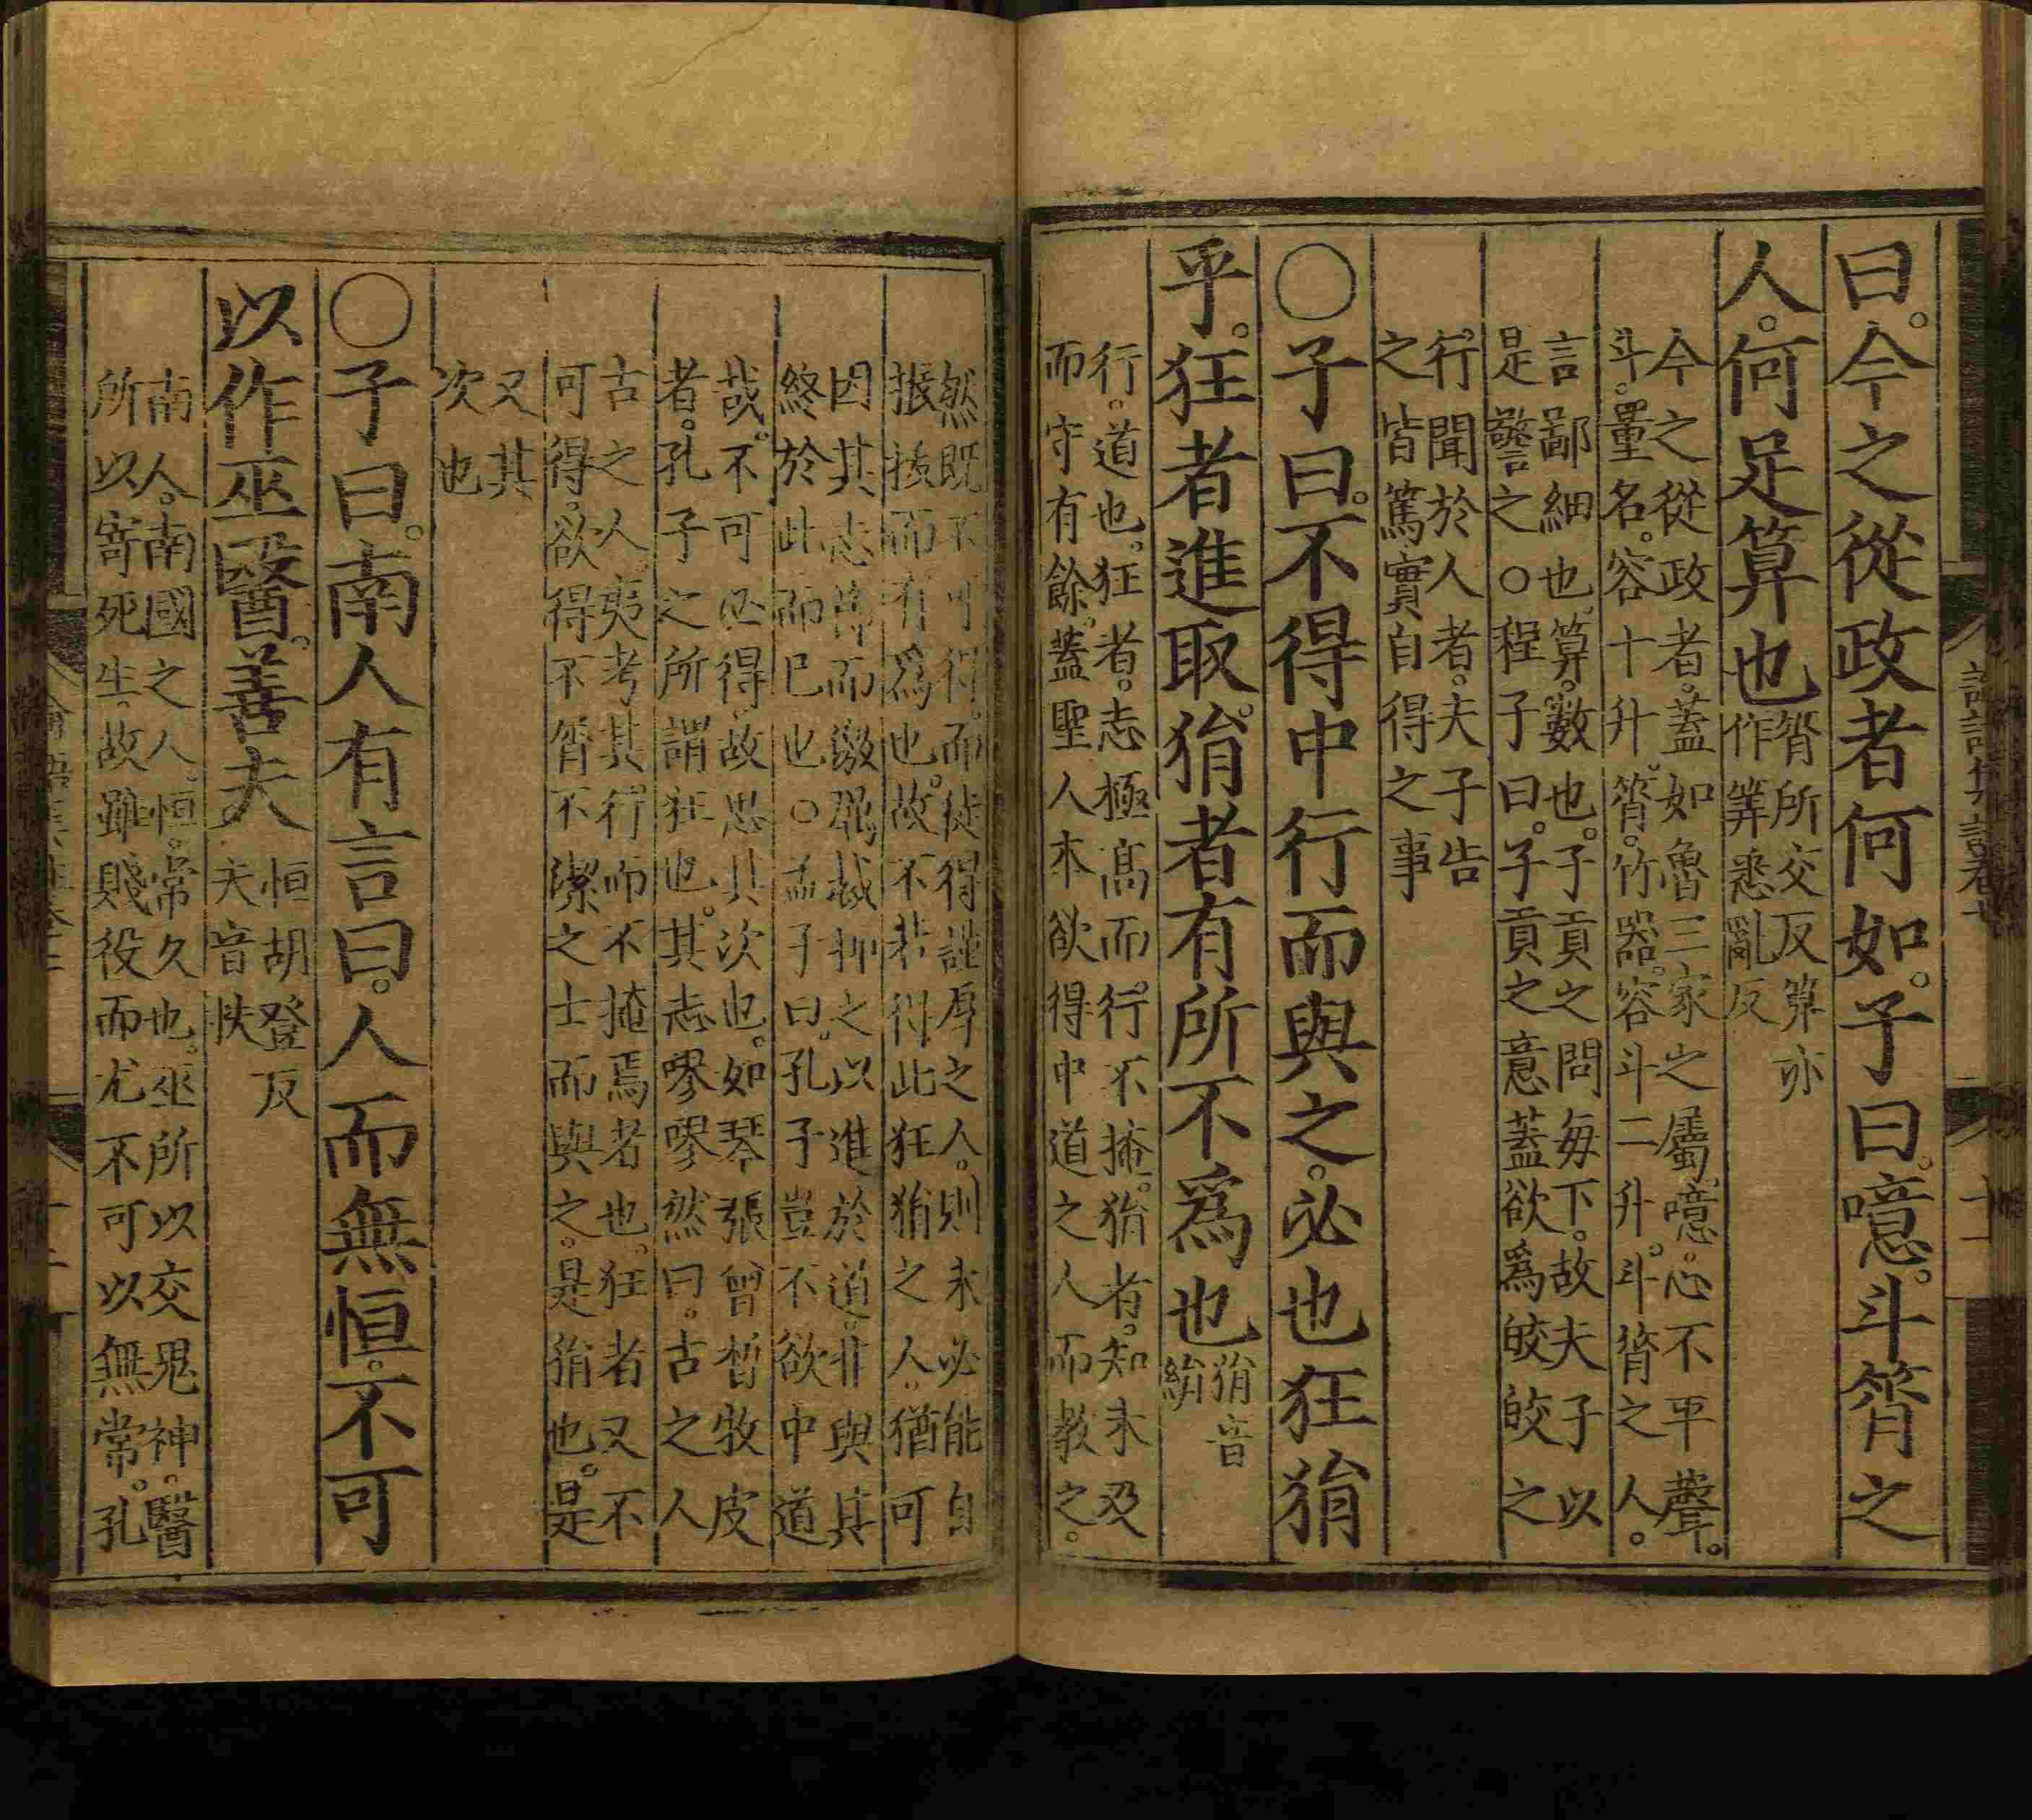 曰。今之從政者何如。子曰。噫。斗筲之
人。何足算也筲所交反算亦
作筭悉亂反
今之從政者。蓋如魯三家之屬。噫。心不平聲。
斗。量名。容十升。筲。竹器。容斗二升。斗筲之人。
言鄙細也。算。數也。子貢之問每下。故夫子以
是警之○程子曰。子貢之意蓋欲爲皎皎之
行。聞於人者。夫子告
之皆篤實自得之事
○子曰。不得中行而與之。必也狂狷
乎。狂者進取。狷者有所不爲也狷音
絹
行。道也。狂者。志極高而。行不掩。狷者。知未及
而守有餘。蓋聖人本欲得中道之人而教之。
然既不可得。而徒得謹厚之人。則未必能自
振拔而有爲也。故不若得此狂狷之人。猶可
因其志節而激厲裁抑之以進於道。非與其
終於此而已也○孟子曰。孔子豈不欲中道
哉。不可必得。故思其次也。如琴張曾晳牧皮
者。孔子之所謂狂也。其志嘐嘐然曰。古之人
古之人。夷考其行。而不掩焉者也。狂者又不
可得。欲得不屑不潔之士而與之。是狷也。是
又其
次也
○子曰。南人有言曰。人而無恒。不可
以作巫醫。善夫恒胡登反
夫音扶
南人。南國之人。恒。常久也。巫所以交鬼神。醫
所以寄死生。故雖賤役而尤不可以無常。孔